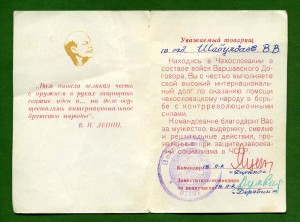 "Вам выпала великая честь
с оружием в руках защищать
святые идеи и... на деле осу-
ществлять интернациональное
братство народов".
В. И. ЛЕНИН.
Уважаемый товарищ
В.В
Находясь в Чехословакии в
составе войск Варшавского До-
говора, Вы с честью выполняете
свой высокий интернациональ-
ный долг оказания помощи
чехословацкому народу в борьбе
с контрреволюционными
силами.
Командование благодарит Вас
за мужество, выдержку, смелые
и решительные действия, про-
явленные при защите завоеваний
социализма в ЧССР.
Командир
Заместитель командира